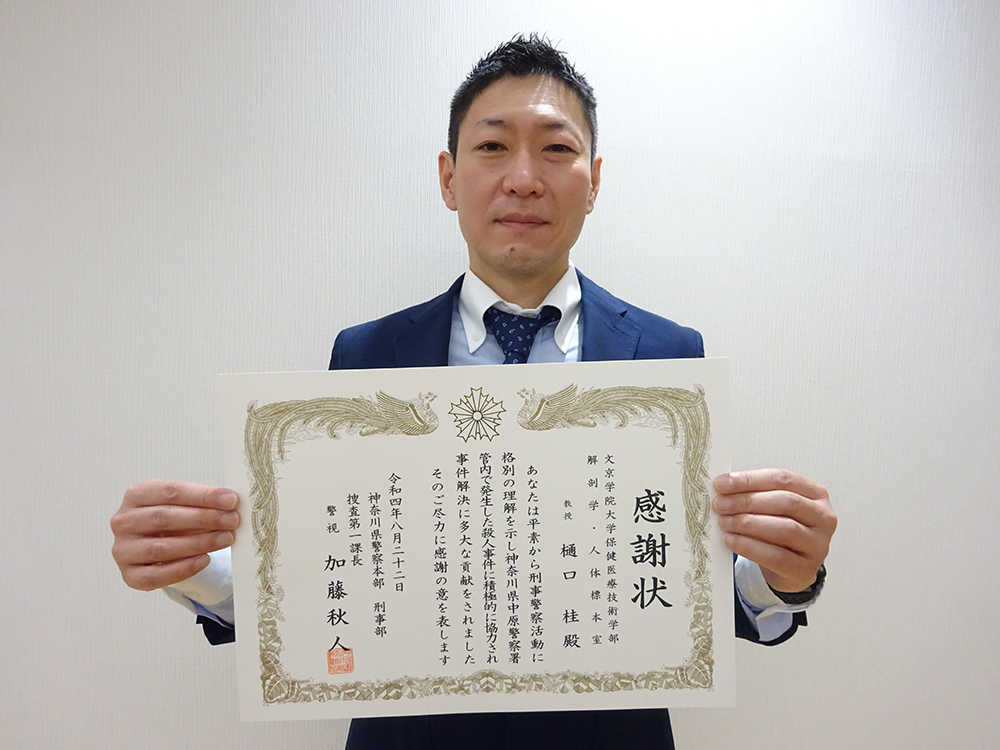 感謝状
文京学院大学保健医療技術学部
解剖学・人体標本室
教授 樋口 桂殿
あなたは平素から刑事警察活動に
格別の理解を示し神奈川県中原警察署
管内で発生した殺人事件に積極的に協力され
事件解決に多大な貢献をされました
そのご尽力に感謝の意を表します
令和四年八月二十二日
神奈川県警察本部 刑事部
捜査第一課長
警視 加藤秋人